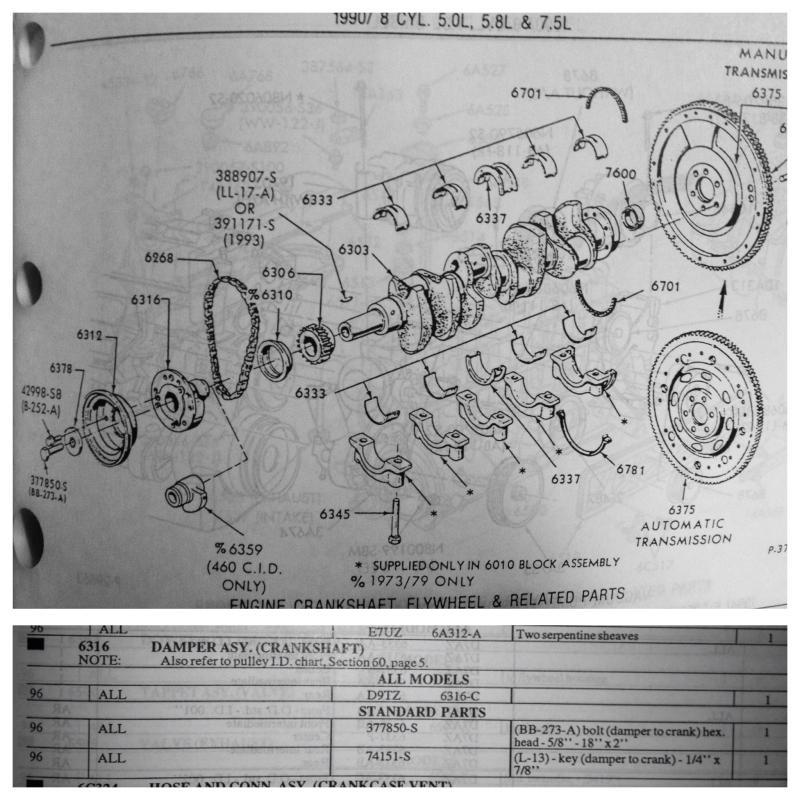 1990/ 8 CYL. 5.0L, 5.8L & 7.5L
MANU
TRANSMIS
6375
6701
7600
388907-S
(LL-17-A)
OR
391171-S
(1993)
6333
6337
6303
6268
6306
% 6310
6316
6701
6312
6378
42998-S8
(B-252-A)
6333
377850-S
(BB-273-A)
6337
6781
6345
6375
AUTOMATIC
TRANSMISSION
% 6359
(460 C.I.D.
ONLY)
* SUPPLIED ONLY IN 6010 BLOCK ASSEMBLY
% 1973/79 ONLY
P-37
ENGINE CRANKSHAFT, FLYWHEEL & RELATED PARTS
96 ALL E7UZ 6A312-A Two serpentine sheaves 1
6316 DAMPER ASY. (CRANKSHAFT)
NOTE: Also refer to pulley I.D. chart, Section 60, page 5.
ALL MODELS
96 ALL D9TZ 6316-C 1
STANDARD PARTS
96 ALL 377850-S (BB-273-A) bolt (damper to crank) hex. 1
head - 5/8'' - 18'' x 2''
96 ALL 74151-S (L-13) - key (damper to crank) - 1/4'' x 1
7/8''
HOSE AND CONN. ASY. (CRANKCASE VENT)